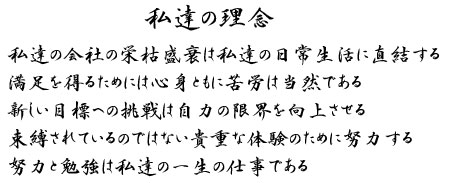 私達の理念
私達の会社の栄枯盛衰は私達の日常生活に直結する
満足を得るためには心身ともに苦労は当然である
新しい目標への挑戦は自力の限界を向上させる
束縛されているのではない貴重な体験のために努力する
努力と勉強は私達の一生の仕事である